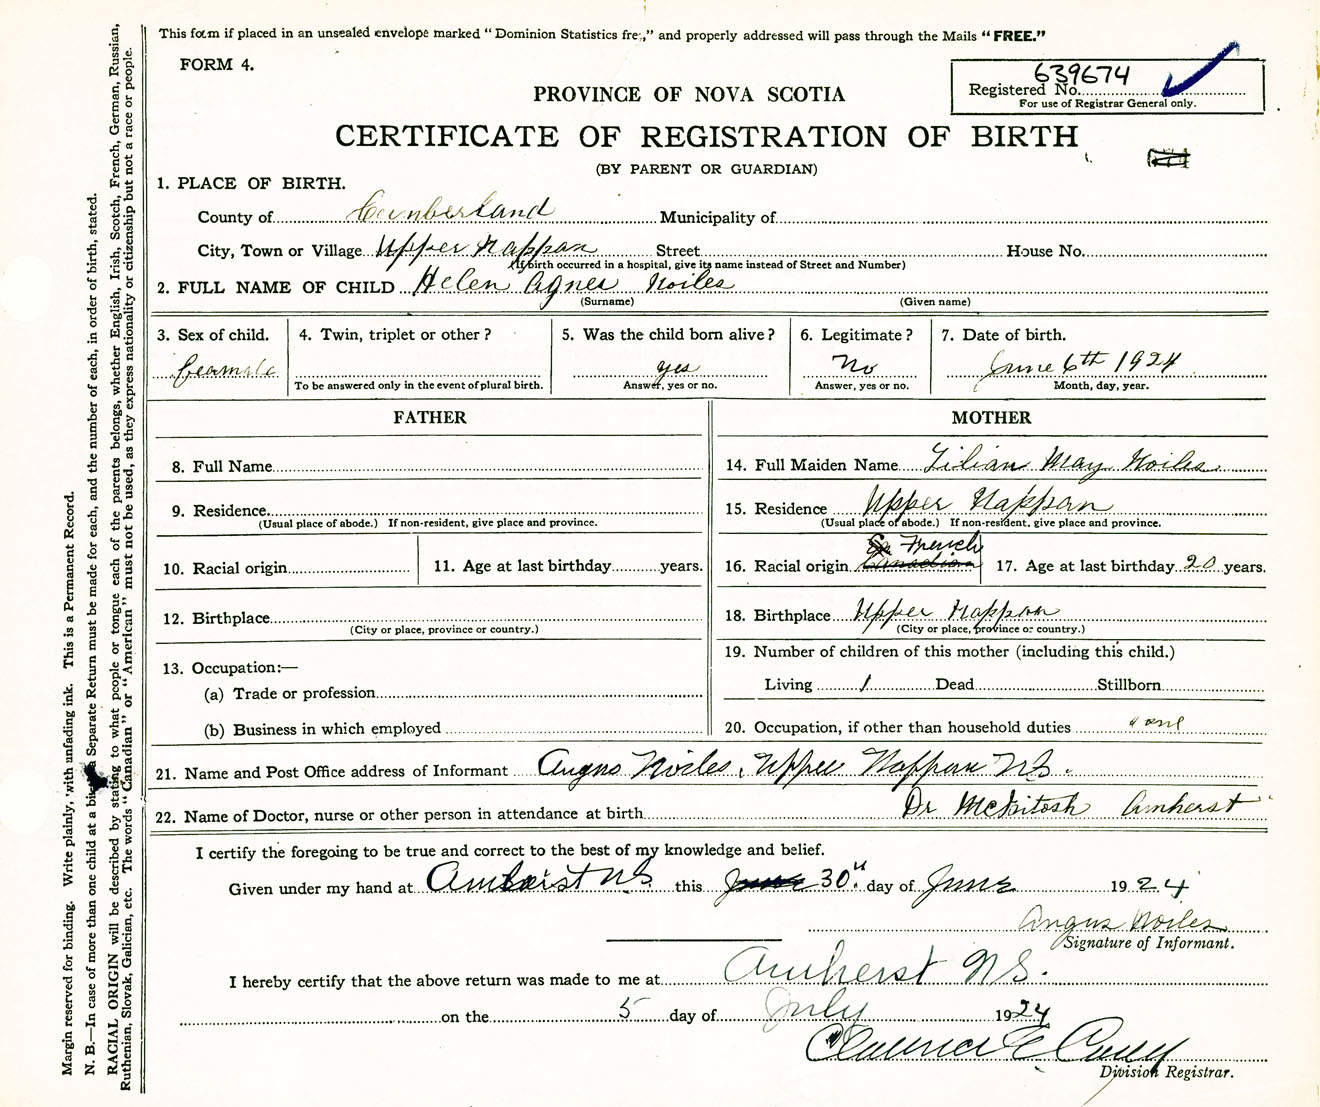 This form if placed in an unsealed envelope marked "Dominion Statistics free," and properly addressed will pass through the Mails "FREE."
FORM 4.
639674
Registered No.
For use of Registrar General only.
PROVINCE OF NOVA SCOTIA
CERTIFICATE OF REGISTRATION OF BIRTH
(BY PARENT OR GUARDIAN)
1. PLACE OF BIRTH.
County of Cumberland Municipality of
City, Town or Village Upper Nappan Street House No.
(If birth occurred in a hospital, give its name instead of Street and Number)
2. FULL NAME OF CHILD Helen Agnes Noiles
(Surname) (Given name)
3. Sex of child. 4. Twin, triplet or other? 5. Was the child born alive? 6. Legitimate? 7. Date of birth.
feamale yes No June 6th 1924
To be answered only in the event of plural birth. Answer, yes or no. Answer, yes or no. Month, day, year.
FATHER
8. Full Name
9. Residence
(Usual place of abode.) If non-resident, give place and province.
10. Racial origin 11. Age at last birthday years.
12. Birthplace
(City or place, province or country.)
13. Occupation:—
(a) Trade or profession
(b) Business in which employed
MOTHER
14. Full Maiden Name Lilian May Noiles
15. Residence Upper Nappan
(Usual place of abode.) If non-resident, give place and province.
French
16. Racial origin Canadian 17. Age at last birthday 20 years.
18. Birthplace Upper Nappan
(City or place, province or country.)
19. Number of children of this mother (including this child.)
Living 1 Dead Stillborn
20. Occupation, if other than household duties
21. Name and Post Office address of Informant Angus Noiles, Upper Nappan N.S.
22. Name of Doctor, nurse or other person in attendance at birth Dr McIntosh Amherst
I certify the foregoing to be true and correct to the best of my knowledge and belief.
Given under my hand at Amherst N.S. this June 30" day of June 1924
Angus Noiles
Signature of Informant.
I hereby certify that the above return was made to me at Amherst N.S.
on the 5 day of July 1924
Clarence E
Division Registrar.
Margin reserved for binding. Write plainly, with unfading ink. This is a Permanent Record.
N. B.—In case of more than one child at a birth a Separate Return must be made for each, and the number of each, in order of birth, stated.
RACIAL ORIGIN will be described by stating to what people or tongue each of the parents belongs, whether English, Irish, Scotch, French, German, Russian,
Ruthenian, Slovak, Galician, etc. The words "Canadian" or "American" must not be used, as they express nationality or citizenship but not a race or people.